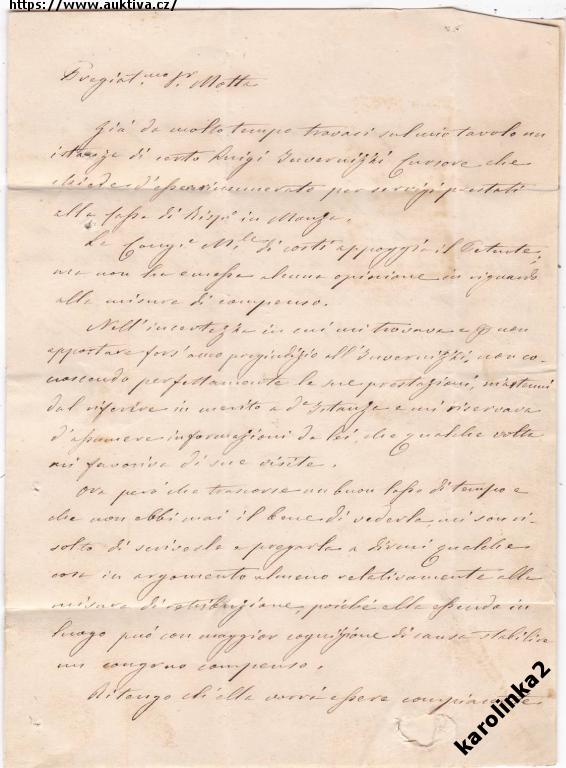 https://www.auktiva.cz/
Pregiat.mo Sr. Motta
Già da molto tempo trovasi sul mio tavolo un
istanza di certo Luigi Invernizzi Cursore che
chiede d'esser rimunerato per servigi prestati
alla Cassa di Risp. in Monza.
La Cong.e M.le di costì appoggia il Petente,
ma non ha emessa alcuna opinione in riguardo
alla misura di compenso.
Nell'incertezza in cui mi trovava e p non
apportare fors'anco pregiudizio all'Invernizzi, non co-
noscendo perfettamente le sue prestazioni, m'astenni
dal riferire in merito a da Istanza e mi riservava
d'assumere informazioni da lei, che qualche volta
mi favoriva di sue visite.
Ora però che trascorse un buon lasso di tempo e
che non ebbi mai il bene di vederla mi son ri-
solto di scriverle e pregarla a dirmi qualche
cosa in argomento almeno relativamente alla
misura di retribuzione, poiché ella essendo in
luogo può con maggior cognizione di causa stabilire
un congruo compenso.
Ritengo ch'ella vorrà essere compiacente
karolinka2